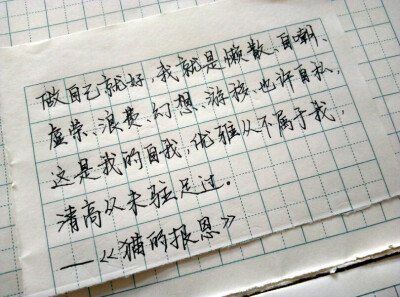 做自己就好,我就是懒散、自嘲、
虚荣、浪费、幻想、游移、也许自私,
这是我的自我,优雅从不属于我,
清高从未驻足过。
—《猫的报恩》